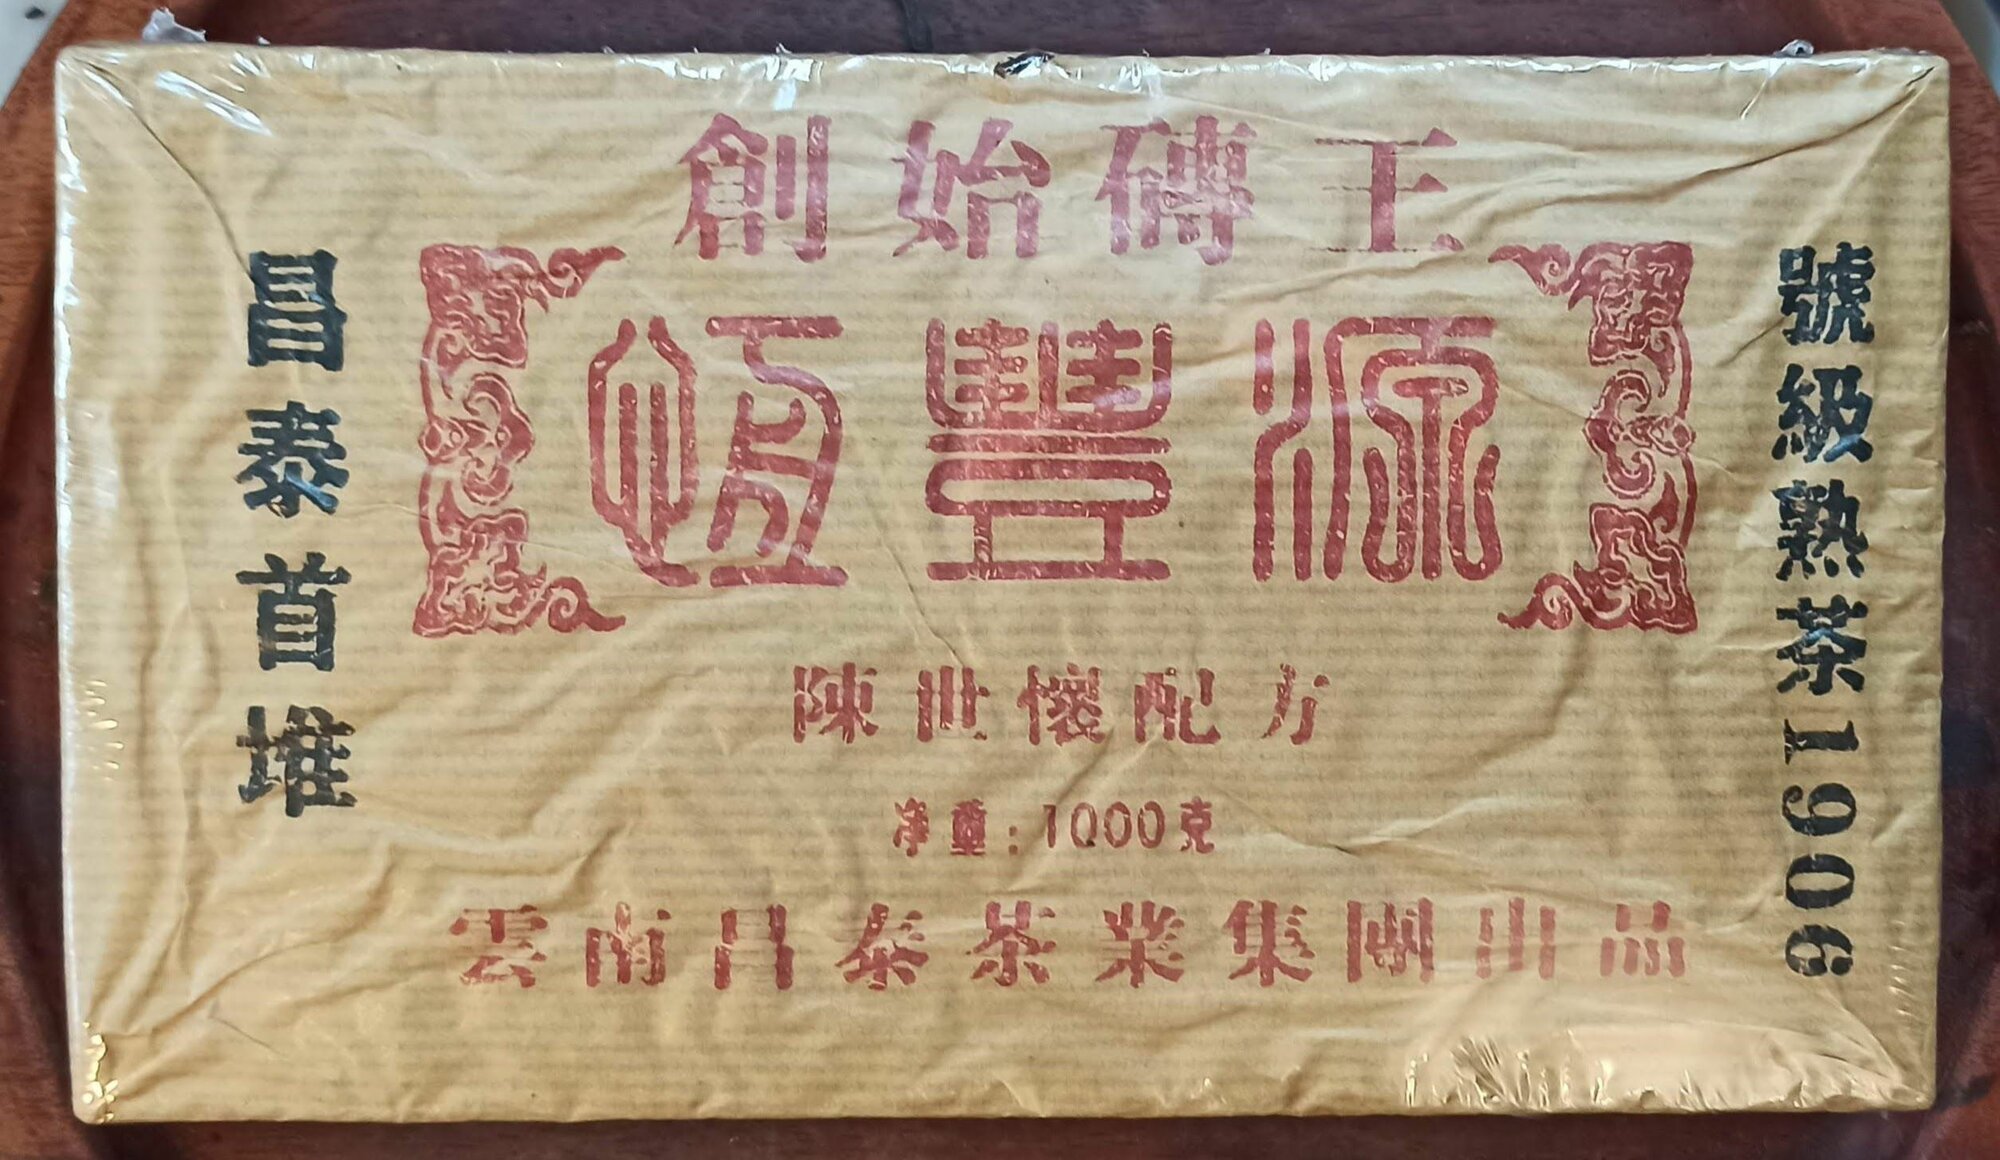 創始磚王
恆豐源
陳世懷配方
净重：1000克
雲南昌泰茶業集團出品
昌泰首堆
號級熟茶1906